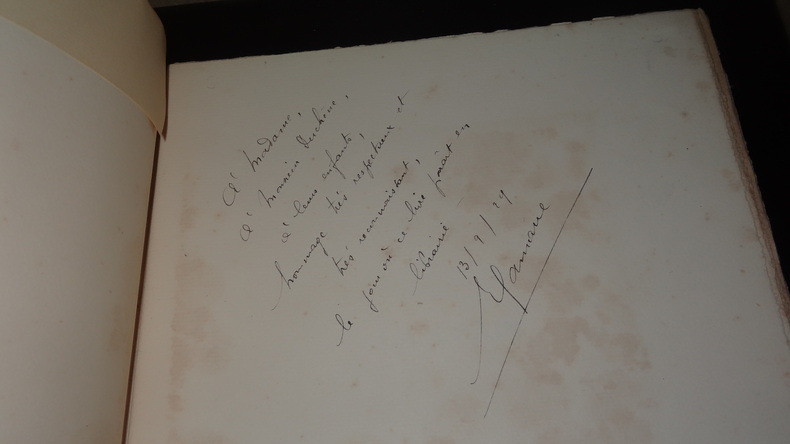 A Madame,
A Monsieur Duchêne,
A leurs enfants,
hommage très respectueux et
très reconnaissant,
le jour où ce livre paraît en
librairie
13/9/29